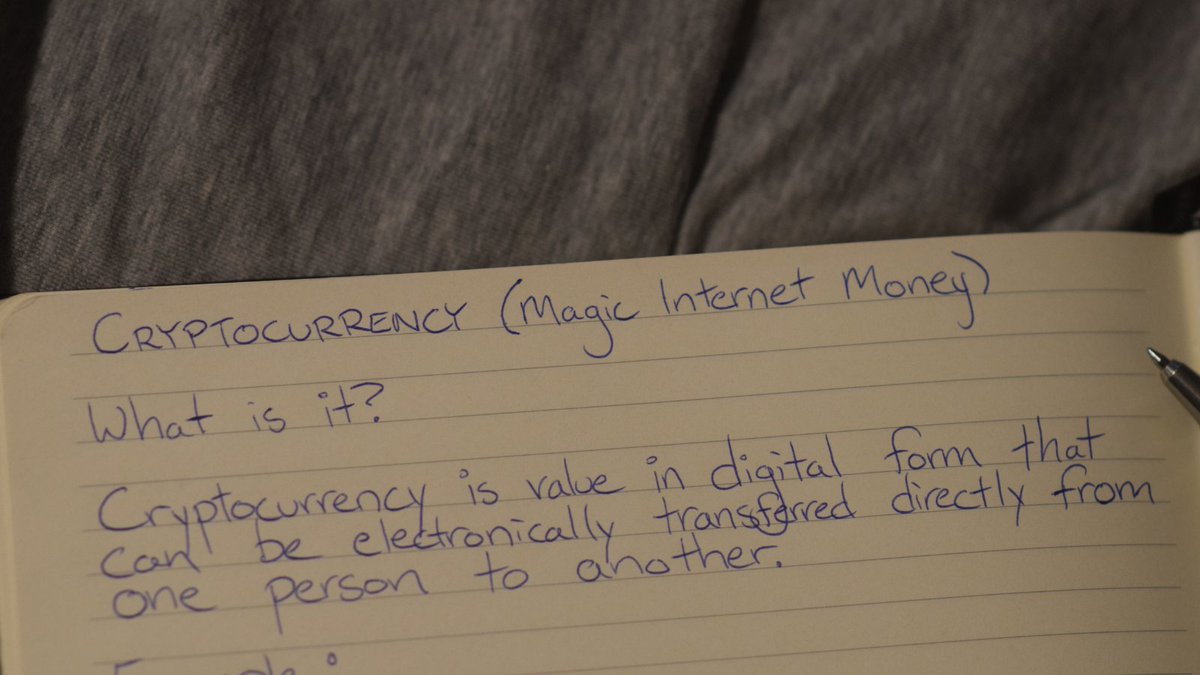 CRYPTOCURRENCY (Magic Internet Money)
What is it?
Cryptocurrency is value in digital form that
can be electronically transferred directly from
one person to another.